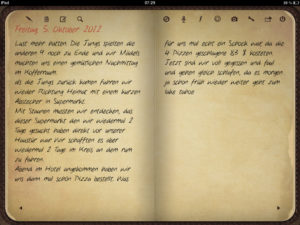 iPad
07:25
Freitag 5. Oktober 2012
Last mehr hatten. Die Jungs spielten die
anderen 9 noch zu Ende und wir Mädels
machten uns einen gemütlichen Nachmittag
im Kofferraum.
als die Jungs zurück kamen fuhren wir
wieder Richtung Heimat mit einem kurzen
Abstecher in Supermarkt.
Mit Staunen mussten wir entdecken, das
dieser Supermarkt den wir wiedermal 2
Tage gesucht haben direkt vor unserer
Haustür war. Wir schafften es aber
wiedermal 2 Tage im Kreis an dem rum
zu fahren.
Abend im Hotel angekommen haben wir
uns dann mal schön Pizza bestellt. Was
für uns mal echt ein Schock war da die
4 Pizzen geschlagene 83 $ kosteten.
Jetzt sind wir voll gegessen und faul
und gehen gleich schlafen, da es morgen
ja schon früh wieder weiter geht zum
lake tahoe